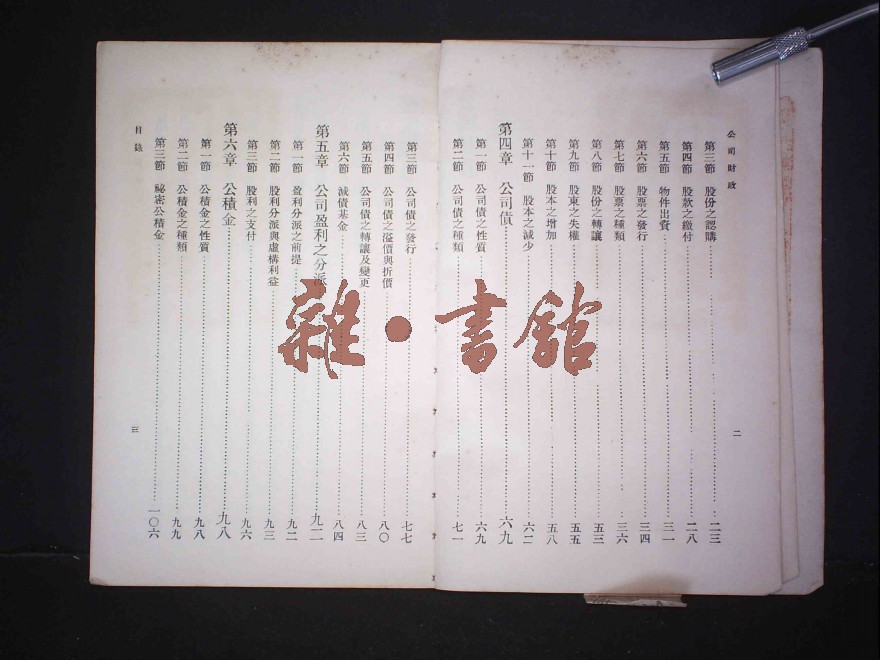 公司財政
第三節 股份之認購 二三
第四節 股款之繳付 二八
第五節 物件出資 三一
第六節 股票之發行 三四
第七節 股票之種類 三六
第八節 股份之轉讓 五三
第九節 股東之失權 五五
第十節 股本之增加 五八
第十一節 股本之減少 六二
第四章 公司債 六九
第一節 公司債之性質 六九
第二節 公司債之種類 七一
二
第三節 公司債之發行 七七
第四節 公司債之溢價與折價 八〇
第五節 公司債之轉讓及變更 八三
第六節 減債基金 八四
第五章 公司盈利之分派 九二
第一節 盈利分派之前提 九二
第二節 股利分派與虛構利益 九三
第三節 股利之支付 九六
第六章 公積金 九八
第一節 公積金之性質 九八
第二節 公積金之種類 九九
第三節 祕密公積金 一〇六
目錄
三
雜·書館